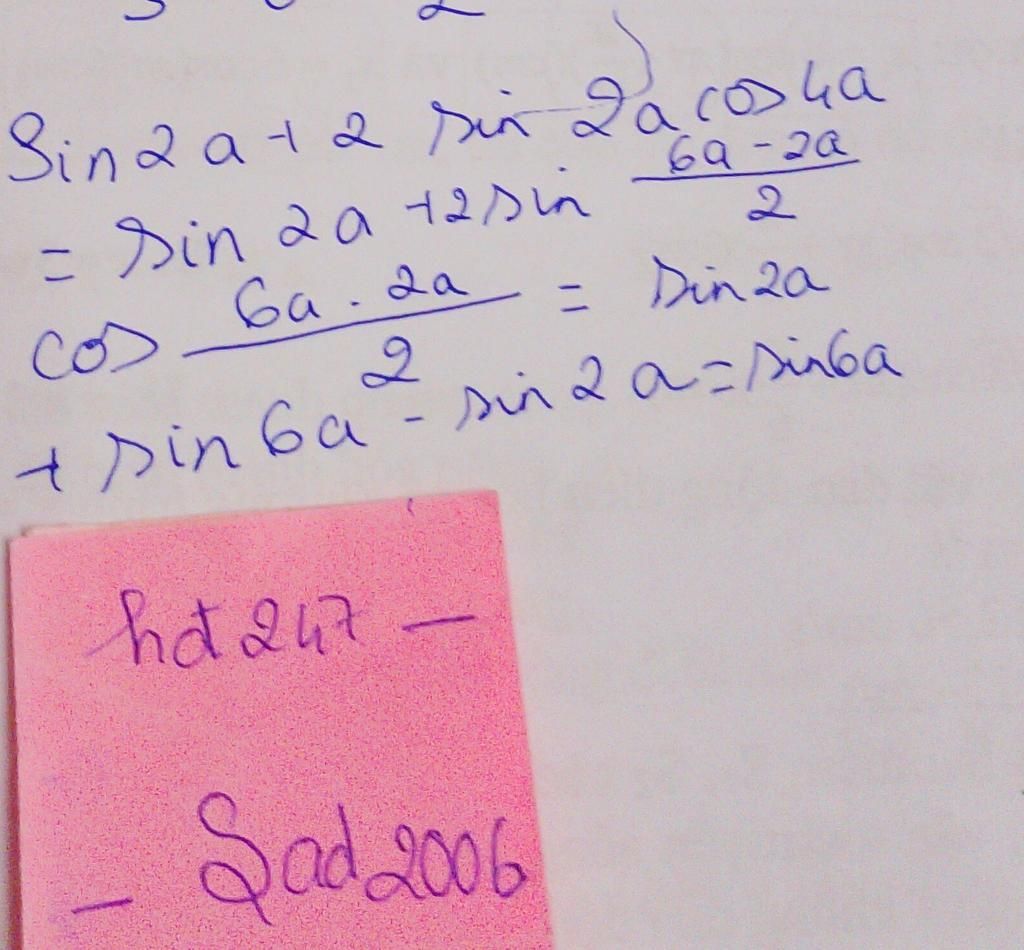 Sin 2a + 2 sin 2a cos 4a
= sin 2a + 2 sin \frac{6a - 2a}{2}
cos \frac{6a . 2a}{2} = sin 2a
+ sin 6a - sin 2a = sin 6a
hdt 247 –
– Sad 2006